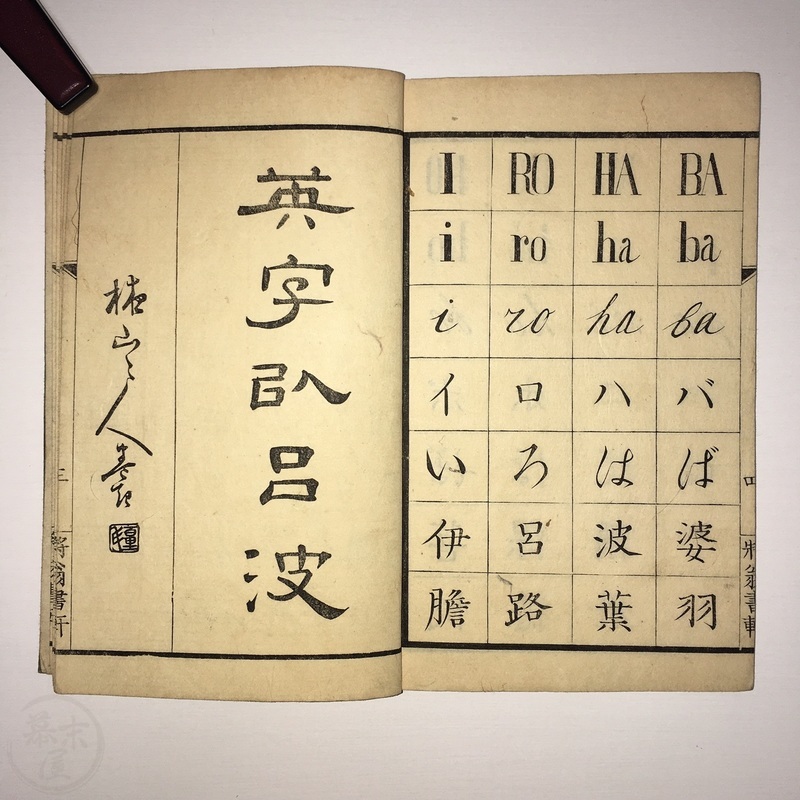 英字以呂波
山
人
三
翁書軒
I RO HA BA
i ro ha ba
i ro ha ba
イ ロ ハ バ
い ろ は ば
伊 呂 波 婆
膽 路 葉 羽
四
翁書軒
幕末屋